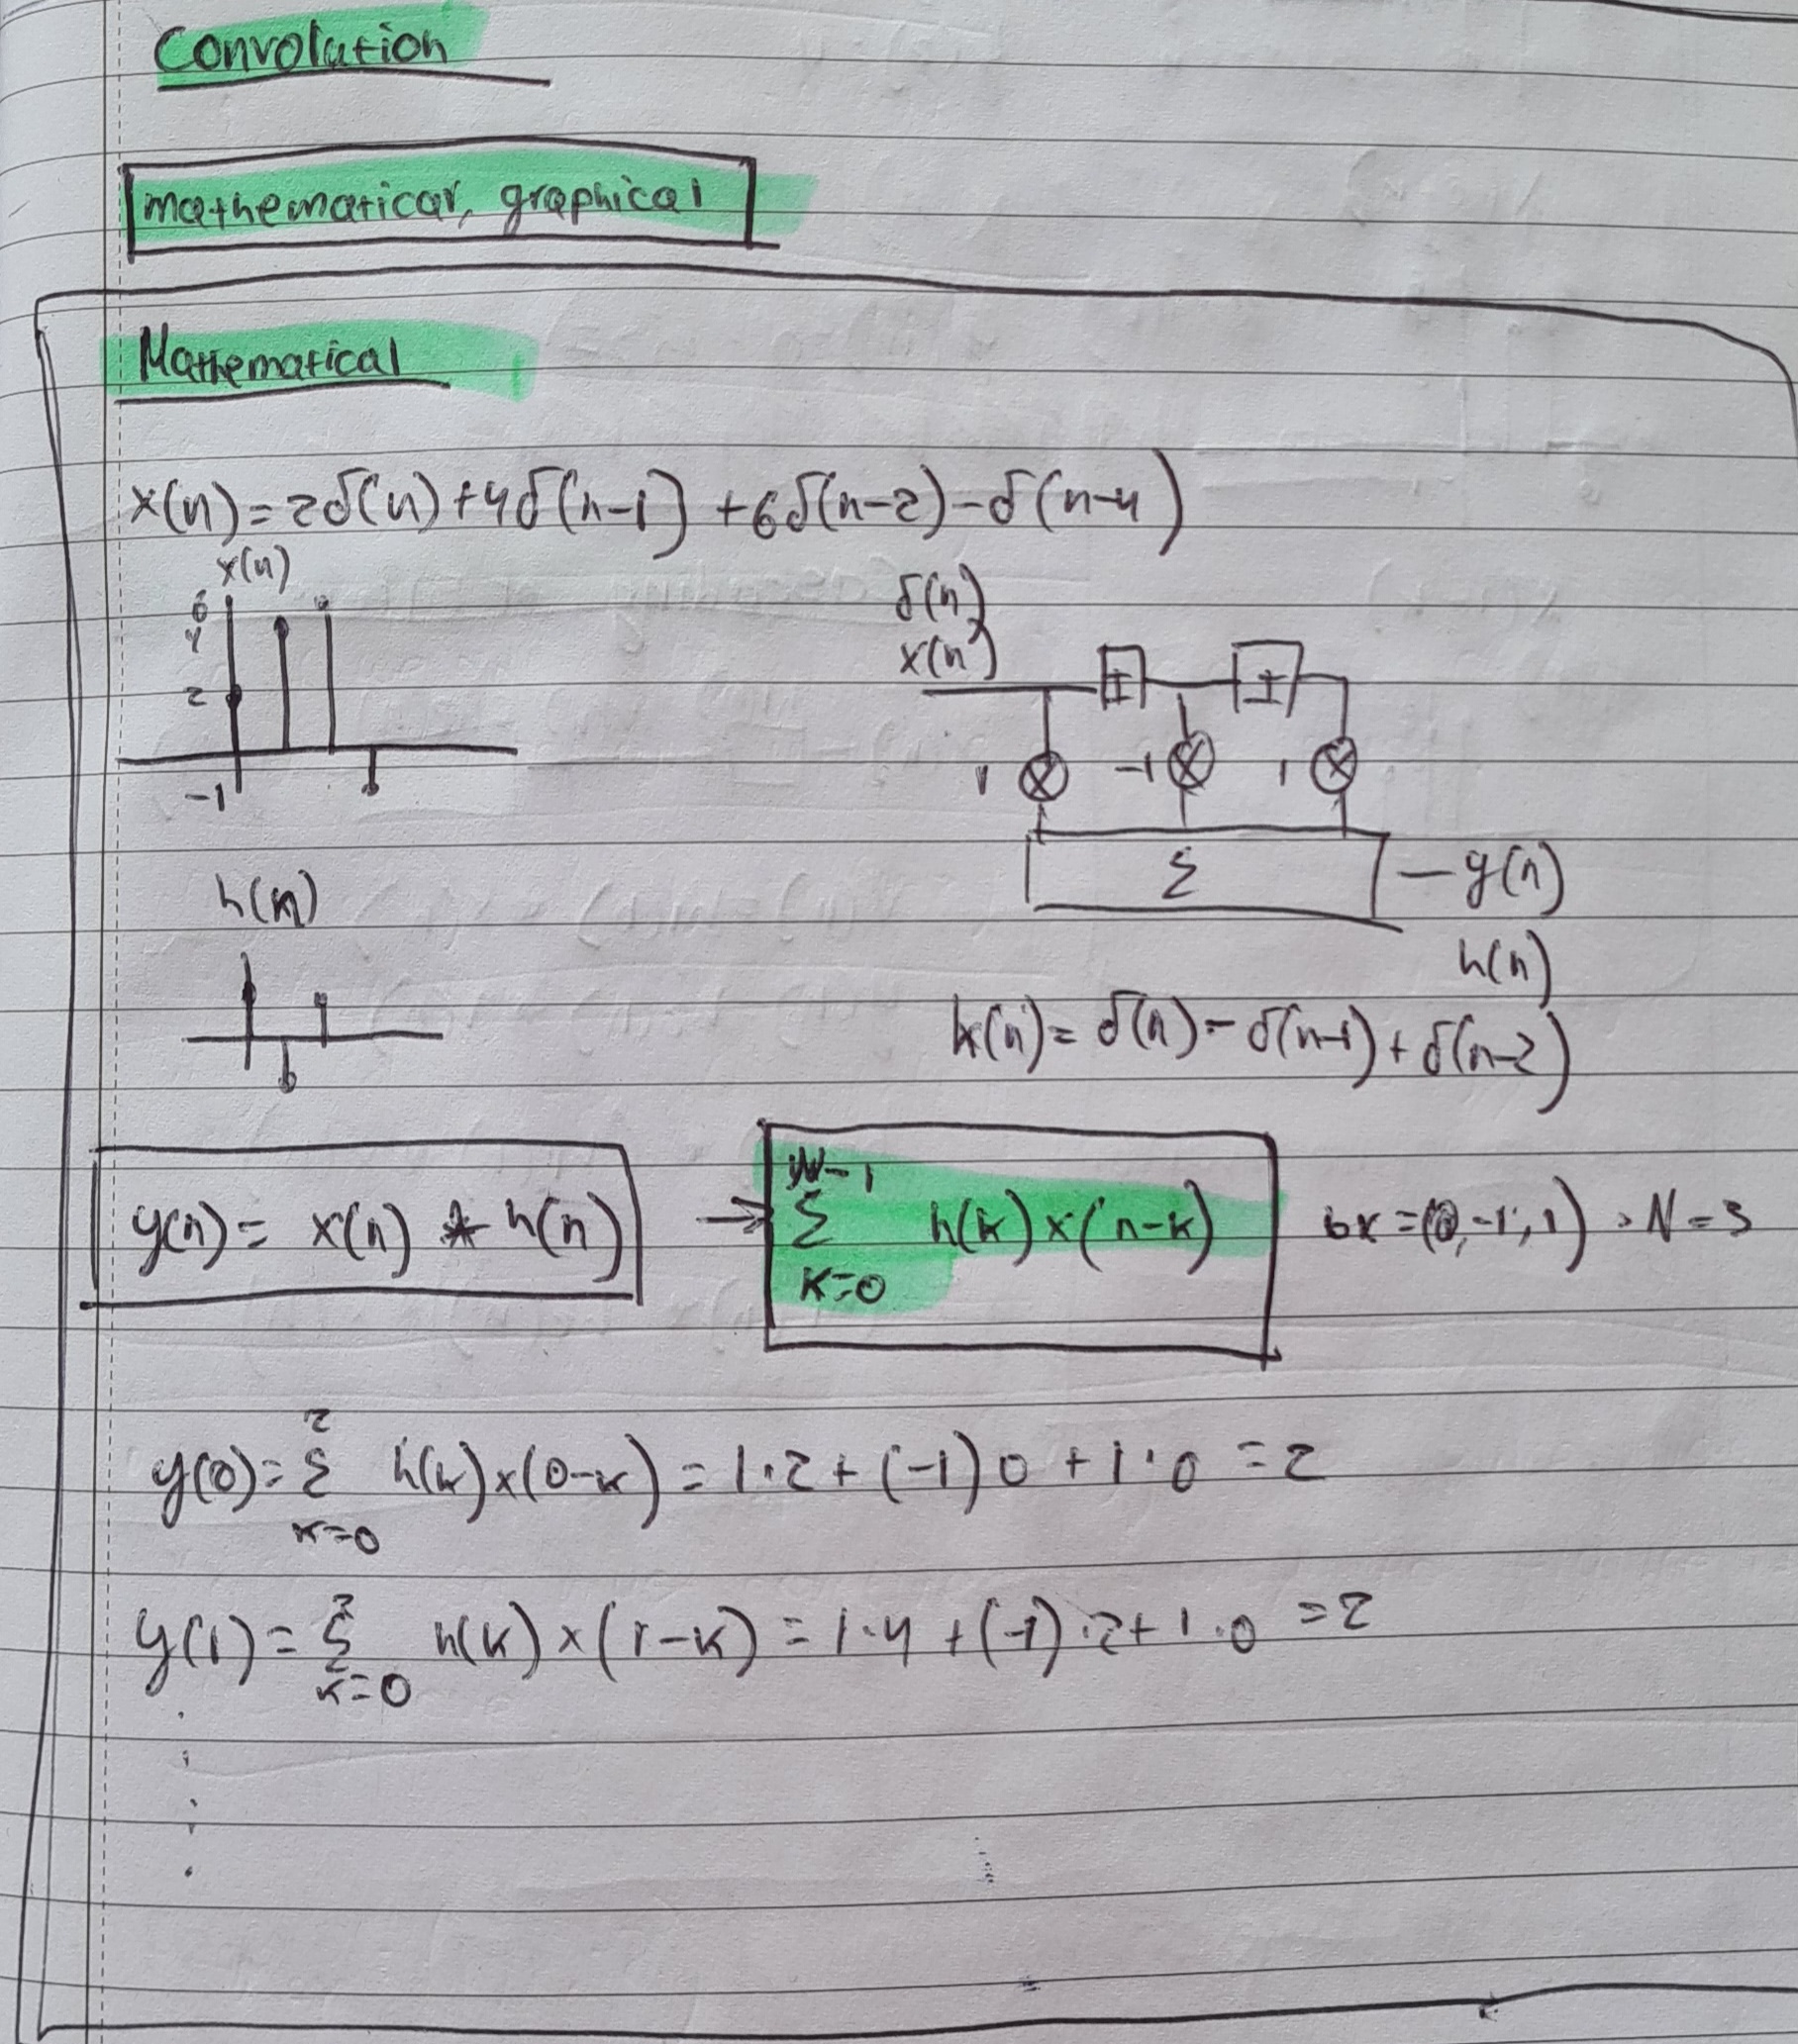 Convolution
mathematical, graphical
Mathematical
x(n)=2δ(n)+4δ(n-1)+6δ(n-2)-δ(n-4)
x(n)
6
4
2
-1
δ(n)
x(n)
1 -1 1
Σ - y(n)
h(n)
h(n)
h(n)= δ(n)-δ(n-1)+δ(n-2)
y(n)= x(n) * h(n) → N-1 Σ k=0 h(k)x(n-k) N=3
y(0)= 2 Σ k=0 h(k)x(0-k)=1·2+(-1)0+1·0=2
y(1)= 2 Σ k=0 h(k)x(1-k)=1·4+(-1)·2+1·0=2